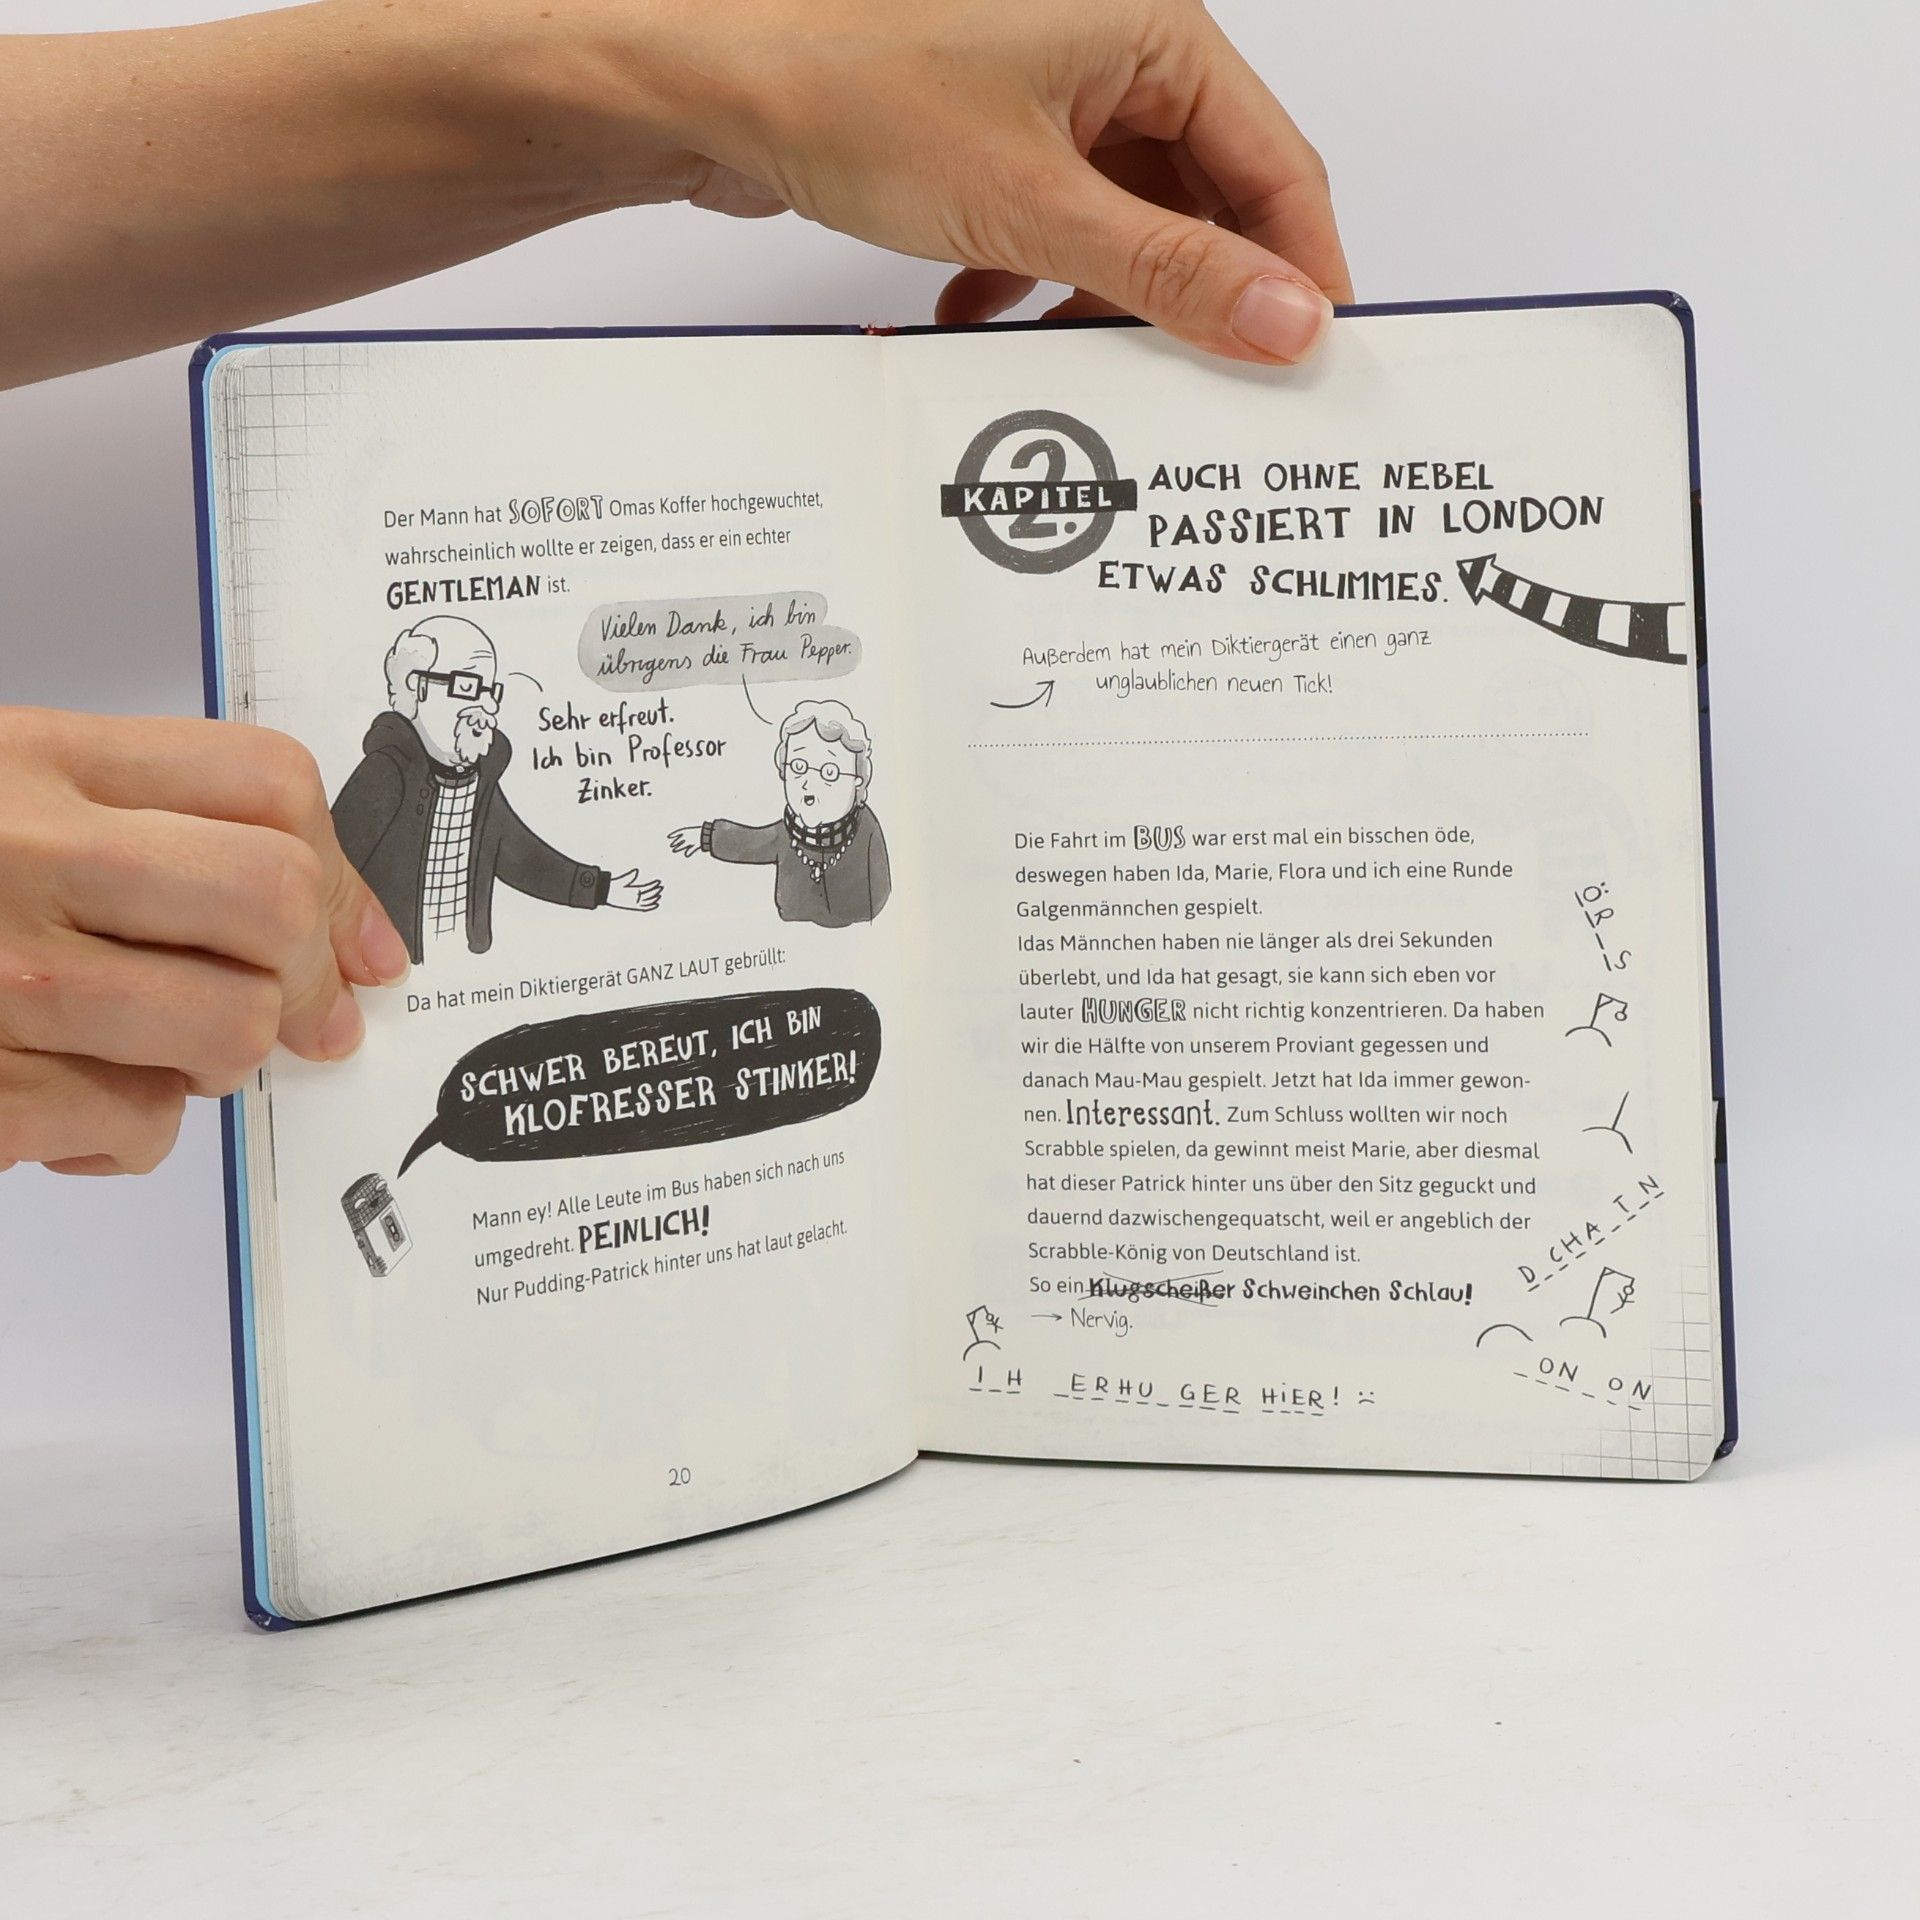 Der Mann hat SOFORT Omas Koffer hochgewuchtet,
wahrscheinlich wollte er zeigen, dass er ein echter
GENTLEMAN ist.
Vielen Dank, ich bin
übrigens die Frau Pepper.
Sehr erfreut.
Ich bin Professor
Zinker.
Da hat mein Diktiergerät GANZ LAUT gebrüllt:
SCHWER BEREUT, ICH BIN
KLOFRESSER STINKER!
Mann ey! Alle Leute im Bus haben sich nach uns
umgedreht. PEINLICH!
Nur Pudding-Patrick hinter uns hat laut gelacht.
20
2.
KAPITEL
AUCH OHNE NEBEL
PASSIERT IN LONDON
ETWAS SCHLIMMES.
Außerdem hat mein Diktiergerät einen ganz
unglaublichen neuen Tick!
Die Fahrt im BUS war erst mal ein bisschen öde,
deswegen haben Ida, Marie, Flora und ich eine Runde
Galgenmännchen gespielt.
Idas Männchen haben nie länger als drei Sekunden
überlebt, und Ida hat gesagt, sie kann sich eben vor
lauter HUNGER nicht richtig konzentrieren. Da haben
wir die Hälfte von unserem Proviant gegessen und
danach Mau-Mau gespielt. Jetzt hat Ida immer gewon-
nen. Interessant. Zum Schluss wollten wir noch
Scrabble spielen, da gewinnt meist Marie, aber diesmal
hat dieser Patrick hinter uns über den Sitz geguckt und
dauernd dazwischengequatscht, weil er angeblich der
Scrabble-König von Deutschland ist.
So ein Klugscheißer Schweinchen Schlau!
→ Nervig.
I_H _ERHU_GER HiER! :(
Ö R _ S
D_CHA_T_N
_ON_ON